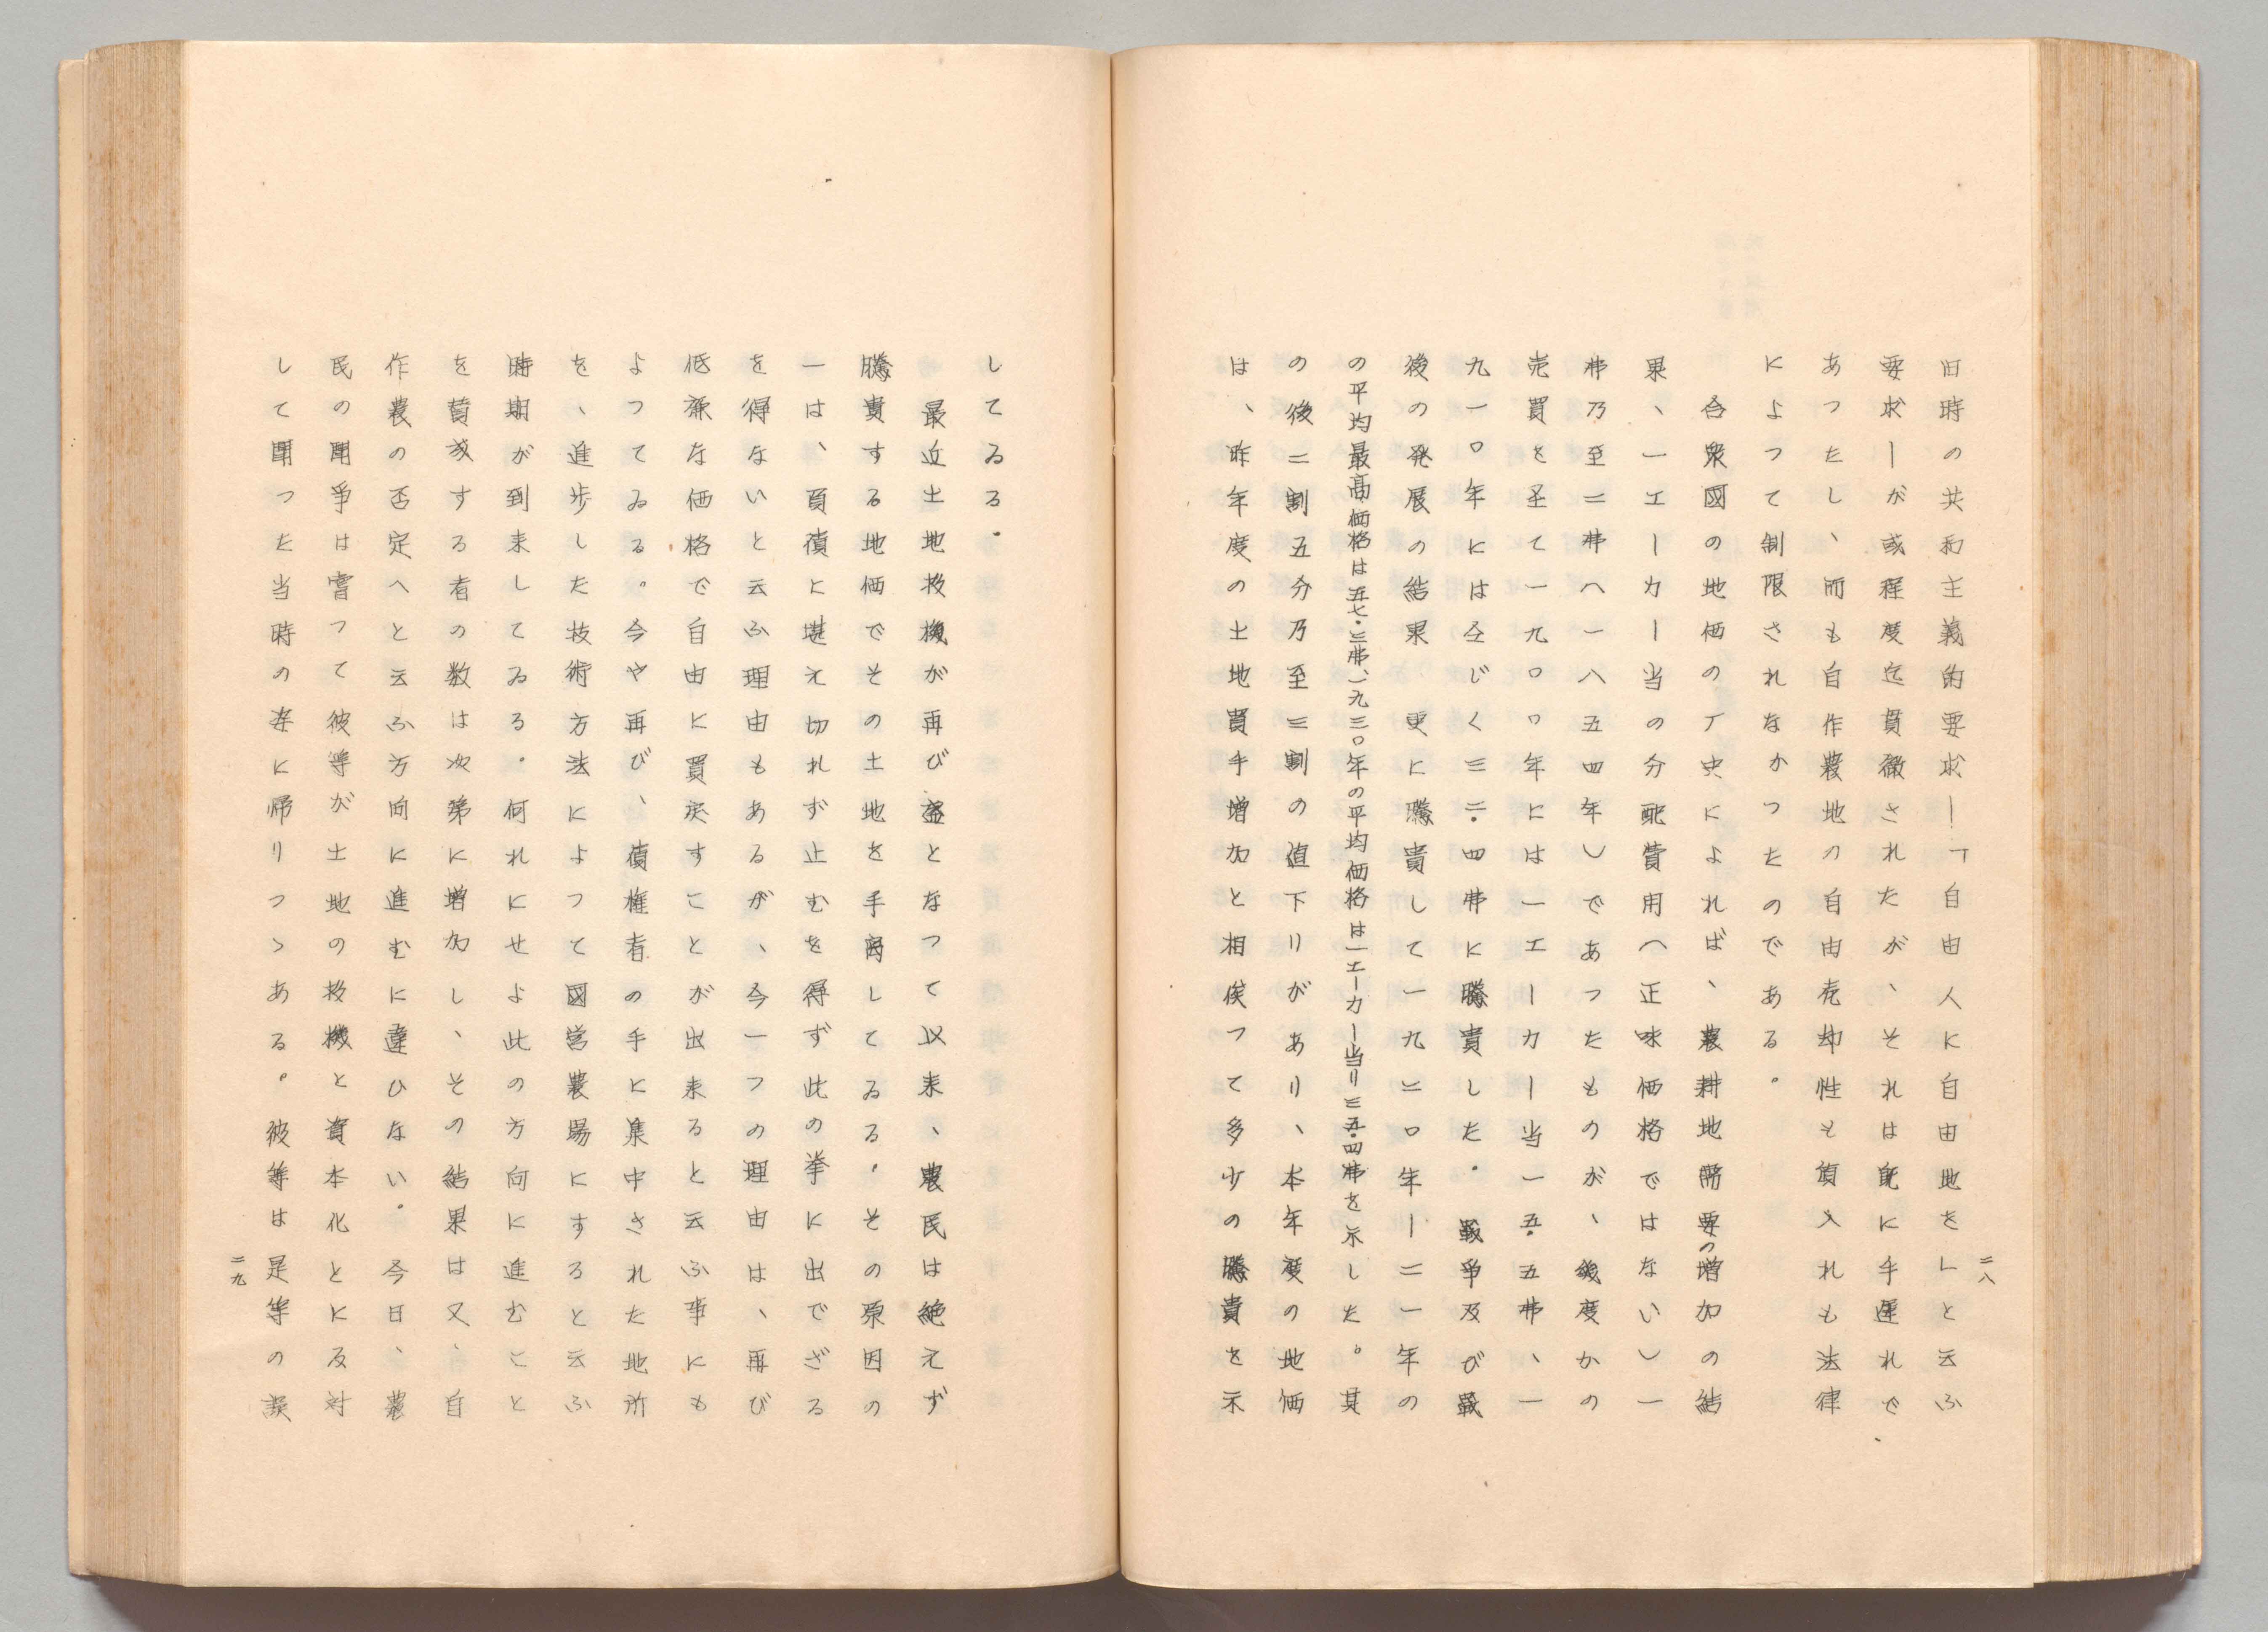 旧時の共和主義的要求―「自由人に自由地を」と云ふ
要求―が或程度迄貫徹されたが、それは既に手遅れで
あつたし、而も自作農地の自由売却性も質入れも法律
によつて制限されなかつたのである。
合衆國の地価の丆史によれば、農耕地需要の増加の結
果、一エーカー当の分配費用(正味価格ではない)一
弗乃至二弗(一八五四年)であつたものが、幾度かの
売買を圣て一九〇〇年には一エーカー当一五・五弗、一
九一〇年には仝じく三二・四弗に騰貴した。戰爭及び戰
後の発展の結果、更に騰貴して一九二〇年―二一年の
の平均最高価格は五七・三弗、一九三〇年の平均価格は一エーカー当リ三五・四弗を示した。其
の後二割五分乃至三割の値下リがあり、本年度の地価
は、昨年度の土地買手増加と相俟つて多少の騰貴を示
二八
してゐる。
最近土地投機が再び盛となつて以来、農民は絶えず
騰貴する地価でその土地を手離してゐる。その原因の
一は、負債に堪え切れず止むを得ず此の挙に出でざる
を得ないと云ふ理由もあるが、今一つの理由は、再び
低廉な価格で自由に買戻すことが出来ると云ふ事にも
よつてゐる。今や再び、債権者の手に集中された地所
を、進歩した技術方法によつて図営農場にすると云ふ
時期が到来してゐる。何れにせよ此の方向に進むこと
を賛成する者の数は次第に増加し、その結果は又、自
作農の否定へと云ふ方向に進むに違ひない。今日、農
民の闘爭は嘗つて彼等が土地の投機と資本化とに反対
して闘つた当時の姿に帰りつゝある。彼等は是等の誤
二九